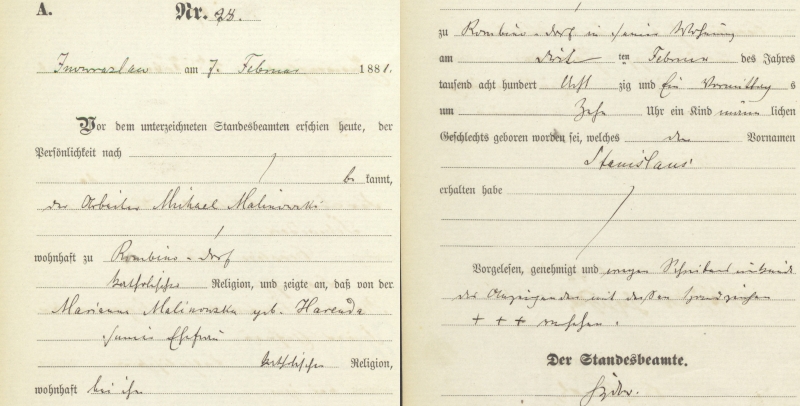 A.
Nr. 28.
Inowrazlaw am 7. Februar 1881.
Vor dem unterzeichneten Standesbeamten erschien heute, der
Persönlichkeit nach
be kannt,
der Arbeiter Michael Malinowski
wohnhaft zu Rombino-dorf
katholischer Religion, und zeigte an, daß von der
Marianna Malinowska geb. Harenda
seiner Ehefrau
katholischer Religion,
wohnhaft bei ihm
zu Rombino-dorf in seiner Wohnung
am ten Februar des Jahres
tausend acht hundert Acht zig und Ein Vormittag s
um Zehn Uhr ein Kind männ lichen
Geschlechts geboren worden sei, welches den Vornamen
Stanislaus
erhalten habe
Vorgelesen, genehmigt und wegen Schreibensunkunde
des Anzeigenden mit dessen Handzeichen
+ + + versehen.
Der Standesbeamte.